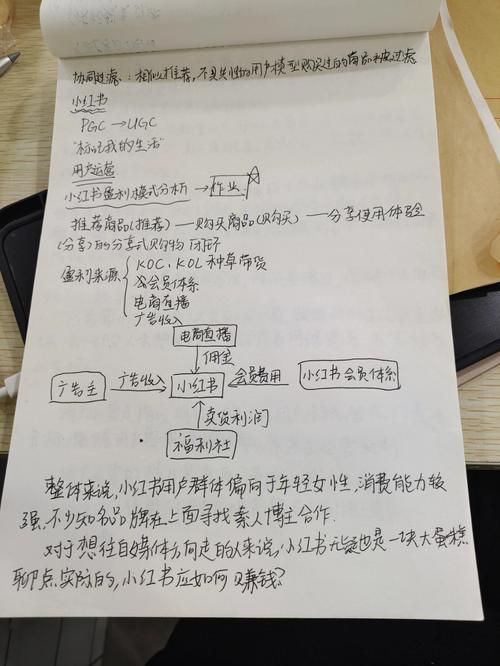 协同过滤:相似推荐,不具共性的用户模型购买过的商品被过滤
小红书
PGC→UGC
"标记我的生活"
用户运营
小红书盈利模式分析→作业☆
推荐商品(推荐)—购买商品(购买)—分享使用体验
(分享)的分享式购物闭环
盈利来源
KOC、KOL种草带货
会员体系
电商直播
广告收入
电商直播
佣金
广告主 广告收入 小红书 会员费用 小红书会员体系
卖货利润
福利社
整体来说,小红书用户群体偏向于年轻女性,消费能力较
强,不少知名品牌在上面寻找素人博主合作.
对于想往自媒体方向走的人来说,小红书无疑也是一块大蛋糕
聊点实际的,小红书应如何赚钱?